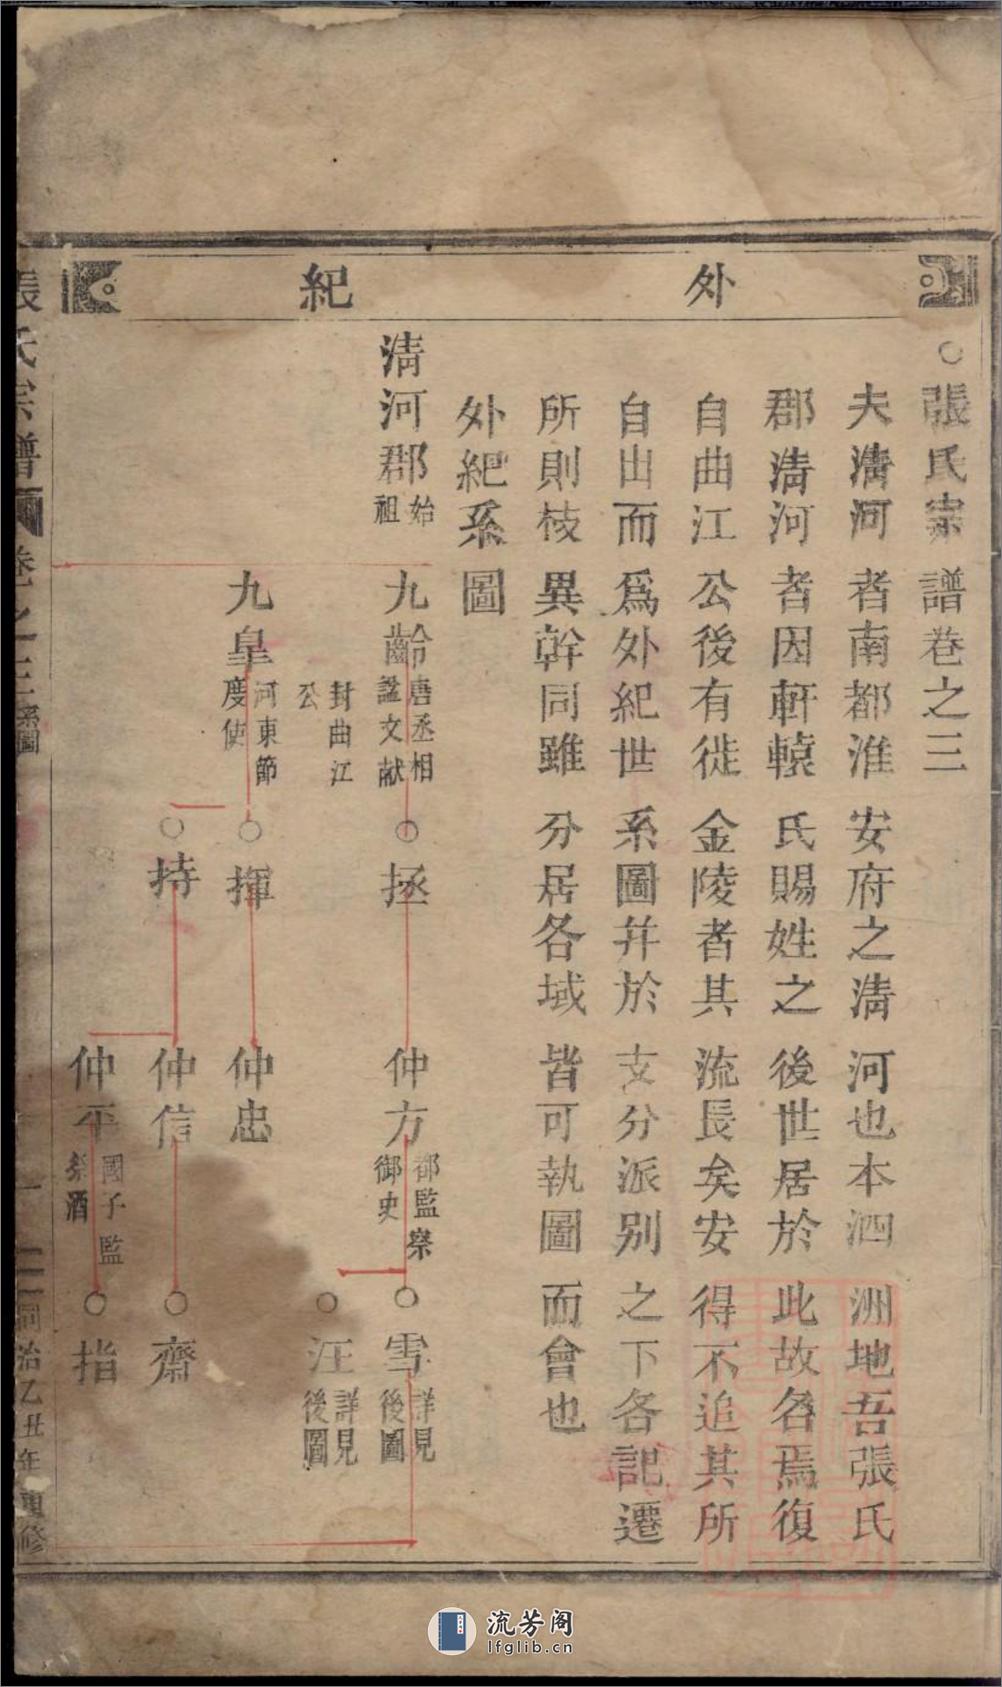 外紀
○張氏宗譜卷之三
夫淸河者南都淮安府之淸河也本泗洲地吾張氏
郡淸河者因軒轅氏賜姓之後世居於此故名焉復
自曲江公後有徙金陵者其流長矣安得不追其所
自出而爲外紀世系圖幷於支分派別之下各記遷
所則枝異幹同雖分居各域皆可執圖而會也
外紀系圖
淸河郡始祖
九齡唐丞相諡文献封曲江公
○拯
仲方都監察御史
○雪詳見後圖
○汪詳見後圖
九皇河東節度使
○揮
仲忠
○持
仲信
○齋
仲平國子監祭酒
○指
張氏宗譜
卷之三系圖
一
同治乙丑年重修
流芳阁
lfglib.cn